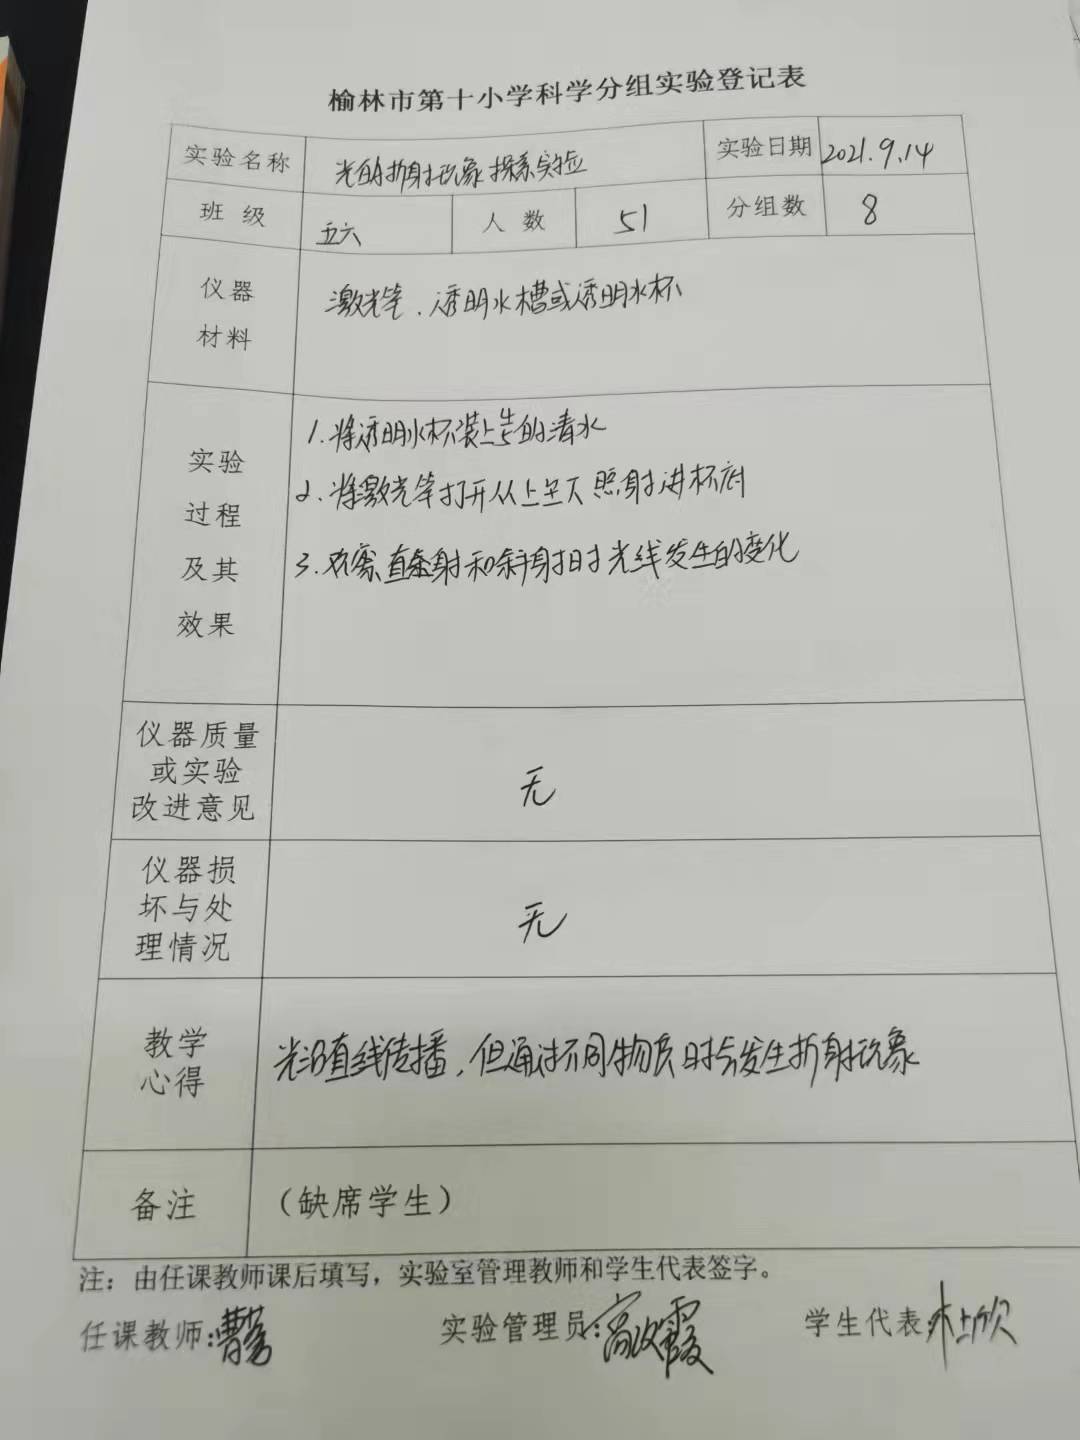 榆林市第十小学科学分组实验登记表
实验名称 光的折射现象探索实验 实验日期 2021.9.14
班 级 五六 人 数 51 分组数 8
仪器
材料
激光笔、透明水槽或透明水杯
实验
过程
及其
效果
1.将透明水杯装上 的清水
2.将激光笔打开从上至下照射进杯底
3.观察直射和斜射时光线发生的变化
仪器质量
或实验
改进意见
无
仪器损
坏与处
理情况
无
教学
心得
光沿直线传播,但通过不同物质时会发生折射现象
备注 (缺席学生)
注:由任课教师课后填写,实验室管理教师和学生代表签字。
任课教师: 曹 实验管理员: 高 霞 学生代表: